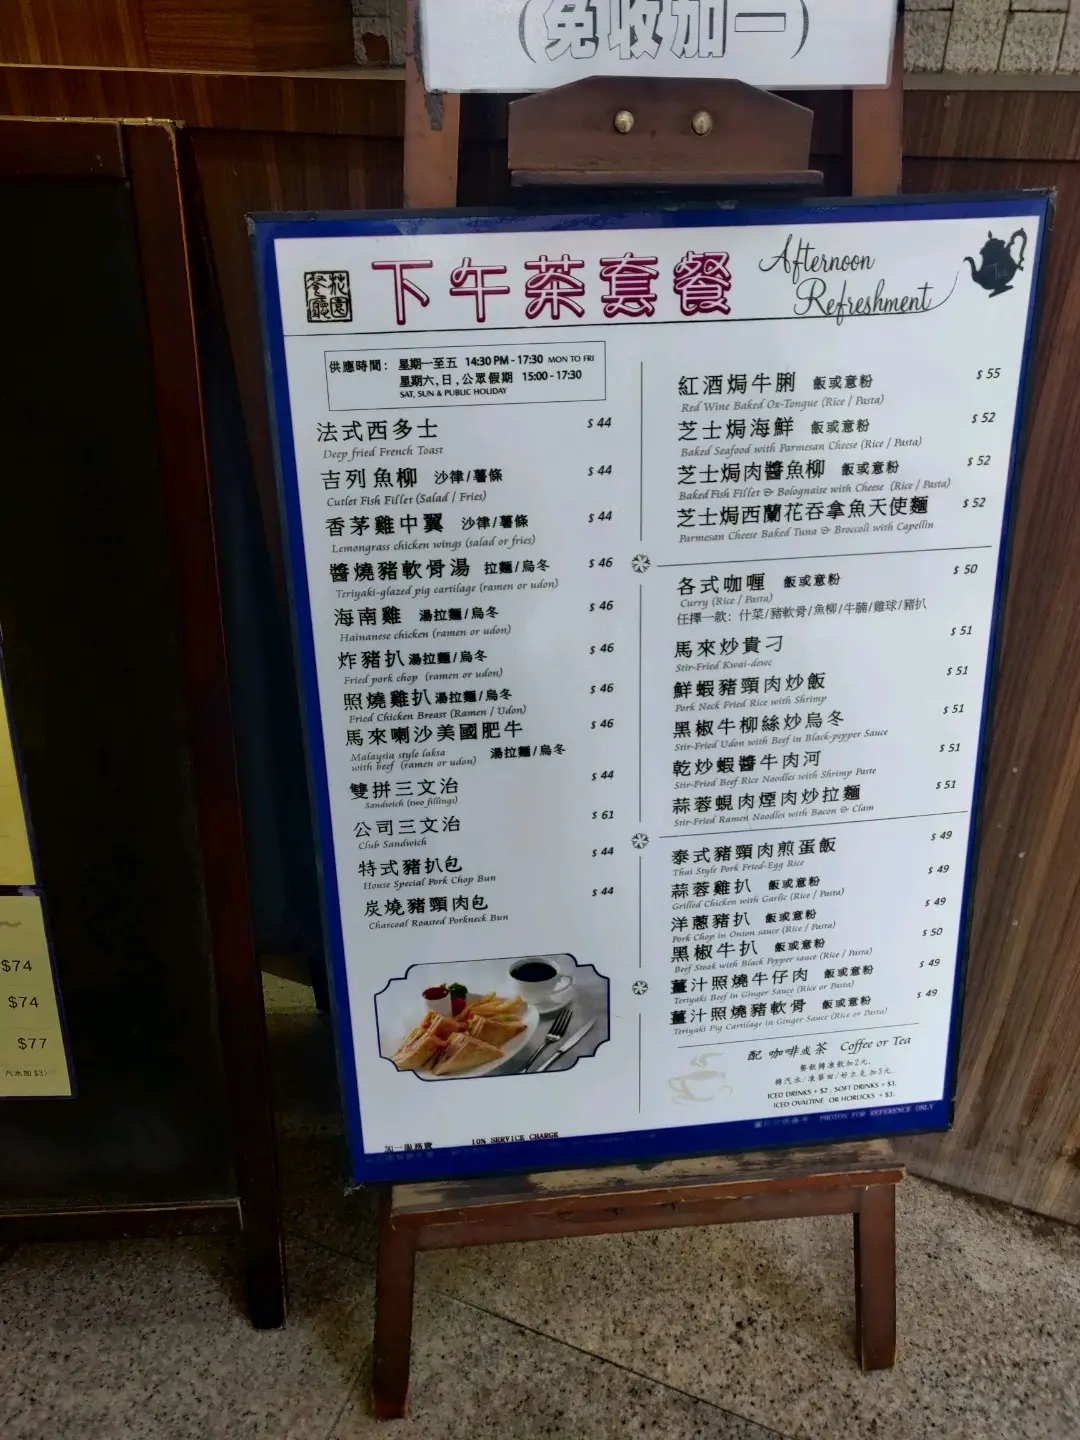 (免收加一)
花園餐廳
下午茶套餐
Afternoon
Refreshment
Tea
供應時間： 星期一至五 14:30 PM - 17:30 MON TO FRI
星期六, 日, 公眾假期 15:00 - 17:30
SAT, SUN & PUBLIC HOLIDAY
法式西多士 $ 44
Deep fried French Toast
吉列魚柳 沙律/薯條 $ 44
Cutlet Fish Fillet (Salad / Fries)
香茅雞中翼 沙律/薯條 $ 44
Lemongrass chicken wings (salad or fries)
醬燒豬軟骨湯 拉麵/烏冬 $ 46
Teriyaki-glazed pig cartilage (ramen or udon)
海南雞 湯拉麵/烏冬 $ 46
Hainanese chicken (ramen or udon)
炸豬扒 湯拉麵/烏冬 $ 46
Fried pork chop (ramen or udon)
照燒雞扒 湯拉麵/烏冬 $ 46
Fried Chicken Breast (Ramen / Udon)
馬來喇沙美國肥牛 $ 46
Malaysia style laksa 湯拉麵/烏冬
with beef (ramen or udon)
雙拼三文治 $ 44
Sandwich (two fillings)
公司三文治 $ 61
Club Sandwich
特式豬扒包 $ 44
House Special Pork Chop Bun
炭燒豬頸肉包 $ 44
Charcoal Roasted Porkneck Bun
加一服務費 10% SERVICE CHARGE
紅酒焗牛脷 飯或意粉 $ 55
Red Wine Baked Ox-Tongue (Rice / Pasta)
芝士焗海鮮 飯或意粉 $ 52
Baked Seafood with Parmesan Cheese (Rice / Pasta)
芝士焗肉醬魚柳 飯或意粉 $ 52
Baked Fish Fillet & Bolognaise with Cheese (Rice / Pasta)
芝士焗西蘭花吞拿魚天使麵 $ 52
Parmesan Cheese Baked Tuna & Broccoli with Capellin
各式咖喱 飯或意粉 $ 50
Curry (Rice / Pasta)
任擇一款：什菜/豬軟骨/魚柳/牛腩/雞球/豬扒
馬來炒貴刁 $ 51
Stir-Fried Kwai-dewc
鮮蝦豬頸肉炒飯 $ 51
Pork Neck Fried Rice with Shrimp
黑椒牛柳絲炒烏冬 $ 51
Stir-Fried Udon with Beef in Black-pepper Sauce
乾炒蝦醬牛肉河 $ 51
Stir-Fried Beef Rice Noodles with Shrimp Paste
蒜蓉蜆肉煙肉炒拉麵 $ 51
Stir-Fried Ramen Noodles with Bacon & Clam
泰式豬頸肉煎蛋飯 $ 49
Thai Style Pork Fried-Egg Rice
蒜蓉雞扒 飯或意粉 $ 49
Grilled Chicken with Garlic (Rice / Pasta)
洋蔥豬扒 飯或意粉 $ 49
Pork Chop in Onion sauce (Rice / Pasta)
黑椒牛扒 飯或意粉 $ 50
Beef Steak with Black Pepper sauce (Rice / Pasta)
薑汁照燒牛仔肉 飯或意粉 $ 49
Teriyaki Beef in Ginger Sauce (Rice or Pasta)
薑汁照燒豬軟骨 飯或意粉 $ 49
Teriyaki Pig Cartilage in Ginger Sauce (Rice or Pasta)
配 咖啡或茶 Coffee or Tea
餐飲轉凍飲加2元,
轉汽水/凍華田/好立克加3元.
ICED DRINKS + $2 , SOFT DRINKS + $3,
ICED OVALTINE OR HORLICKS + $3.
PHOTOS FOR REFERENCE ONLY
$74
$74
$77
汽水加 $3)